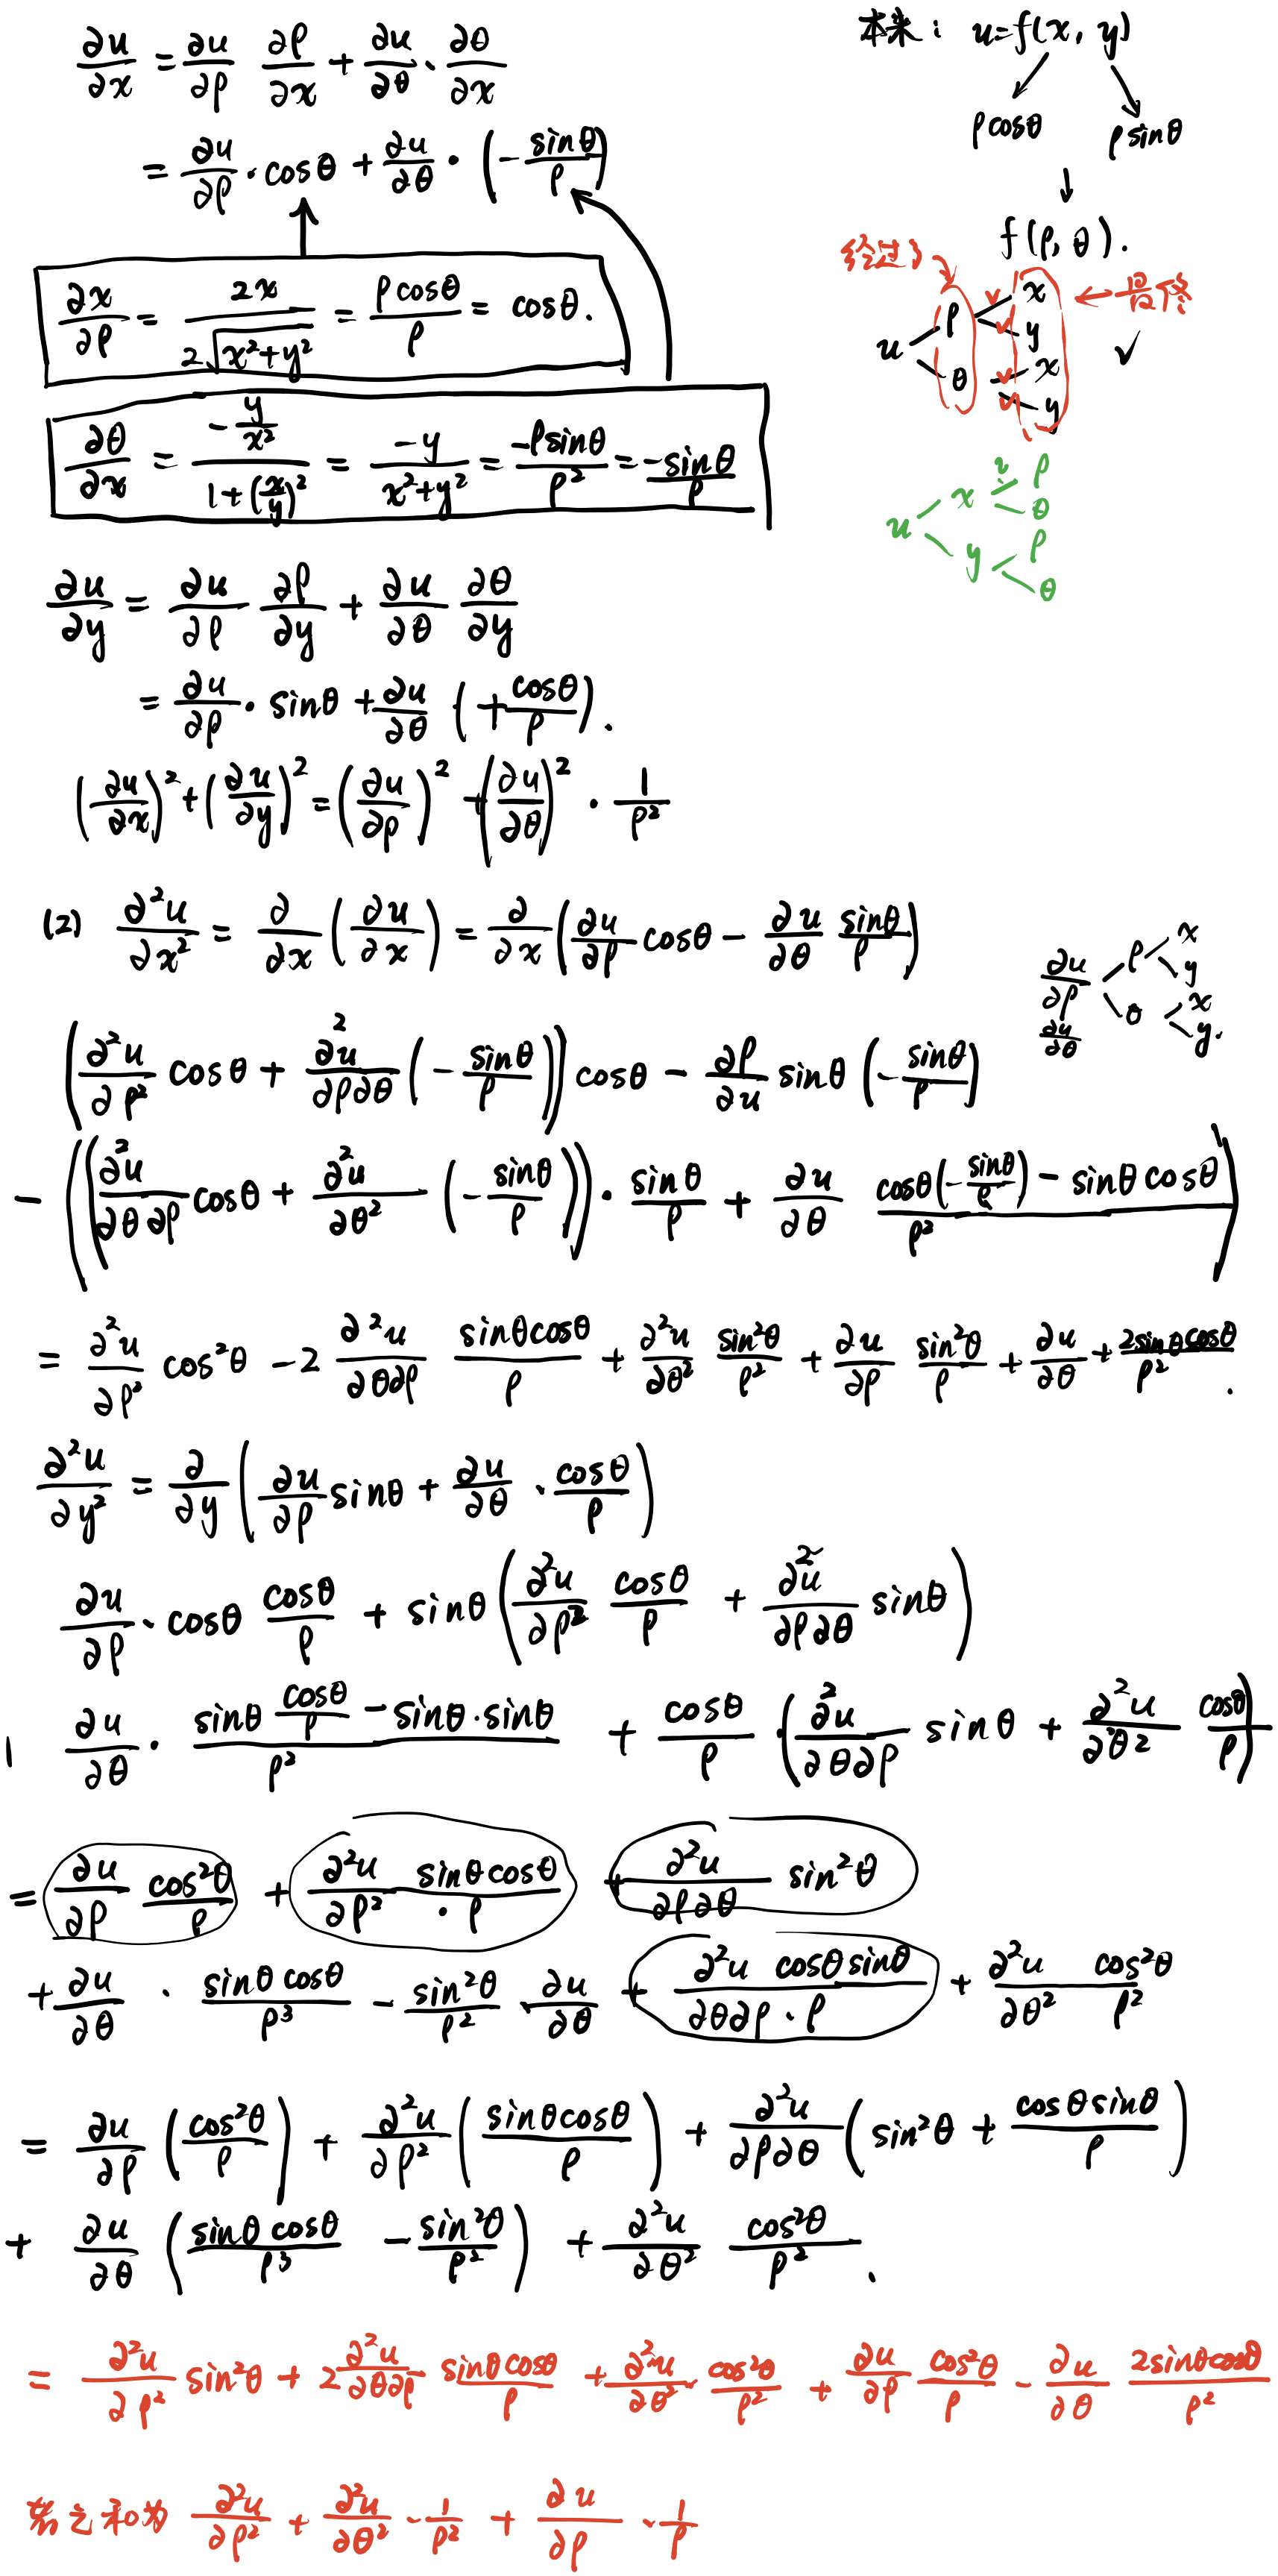 ∂u/∂x = ∂u/∂ρ ∂ρ/∂x + ∂u/∂θ · ∂θ/∂x
= ∂u/∂ρ · cosθ + ∂u/∂θ · (−sinθ/ρ)
∂x/∂ρ = 2x/(2√(x²+y²)) = ρcosθ/ρ = cosθ.
∂θ/∂x = (−y/x²)/(1+(x/y)²) = −y/(x²+y²) = −ρsinθ/ρ² = −sinθ/ρ
本来: u=f(x, y)
ρcosθ ρsinθ
↓
f(ρ, θ).
给过了
u ρ x
y
θ x
y
✓
u x ρ
θ
y ρ
θ
∂u/∂y = ∂u/∂ρ ∂ρ/∂y + ∂u/∂θ ∂θ/∂y
= ∂u/∂ρ · sinθ + ∂u/∂θ (+cosθ/ρ).
(∂u/∂x)² + (∂u/∂y)² = (∂u/∂ρ)² + (∂u/∂θ)² · 1/ρ²
(2) ∂²u/∂x² = ∂/∂x (∂u/∂x) = ∂/∂x (∂u/∂ρ cosθ − ∂u/∂θ sinθ/ρ)
∂u/∂ρ ∂u/∂θ ρ x y
θ x y.
(∂²u/∂ρ² cosθ + ∂²u/∂ρ∂θ (−sinθ/ρ)) cosθ − ∂ρ/∂u sinθ (−sinθ/ρ)
− ((∂²u/∂θ∂ρ cosθ + ∂²u/∂θ² (−sinθ/ρ)) · sinθ/ρ + ∂u/∂θ (cosθ(−sinθ/ρ) − sinθcosθ)/ρ²)
= ∂²u/∂ρ² cos²θ − 2 ∂²u/∂θ∂ρ sinθcosθ/ρ + ∂²u/∂θ² sin²θ/ρ² + ∂u/∂ρ sin²θ/ρ + ∂u/∂θ + 2sinθcosθ/ρ².
∂²u/∂y² = ∂/∂y (∂u/∂ρ sinθ + ∂u/∂θ · cosθ/ρ)
∂u/∂ρ · cosθ cosθ/ρ + sinθ (∂²u/∂ρ² cosθ/ρ + ∂²u/∂ρ∂θ sinθ)
∂u/∂θ · (sinθ cosθ/ρ − sinθ·sinθ)/ρ² + cosθ/ρ · (∂²u/∂θ∂ρ sinθ + ∂²u/∂θ² cosθ/ρ)
= ∂u/∂ρ cos²θ/ρ + ∂²u/∂ρ² · sinθcosθ/ρ + ∂²u/∂ρ∂θ sin²θ
+ ∂u/∂θ · sinθcosθ/ρ³ − sin²θ/ρ² · ∂u/∂θ + ∂²u cosθsinθ/∂θ∂ρ·ρ + ∂²u/∂θ² cos²θ/ρ²
= ∂u/∂ρ (cos²θ/ρ) + ∂²u/∂ρ² (sinθcosθ/ρ) + ∂²u/∂ρ∂θ (sin²θ + cosθsinθ/ρ)
+ ∂u/∂θ (sinθcosθ/ρ³ − sin²θ/ρ²) + ∂²u/∂θ² cos²θ/ρ².
= ∂²u/∂ρ² sin²θ + 2 ∂²u/∂θ∂ρ sinθcosθ/ρ + ∂²u/∂θ² · cos²θ/ρ² + ∂u/∂ρ cos²θ/ρ − ∂u/∂θ 2sinθcosθ/ρ²
之和为 ∂²u/∂ρ² + ∂²u/∂θ² · 1/ρ² + ∂u/∂ρ · 1/ρ